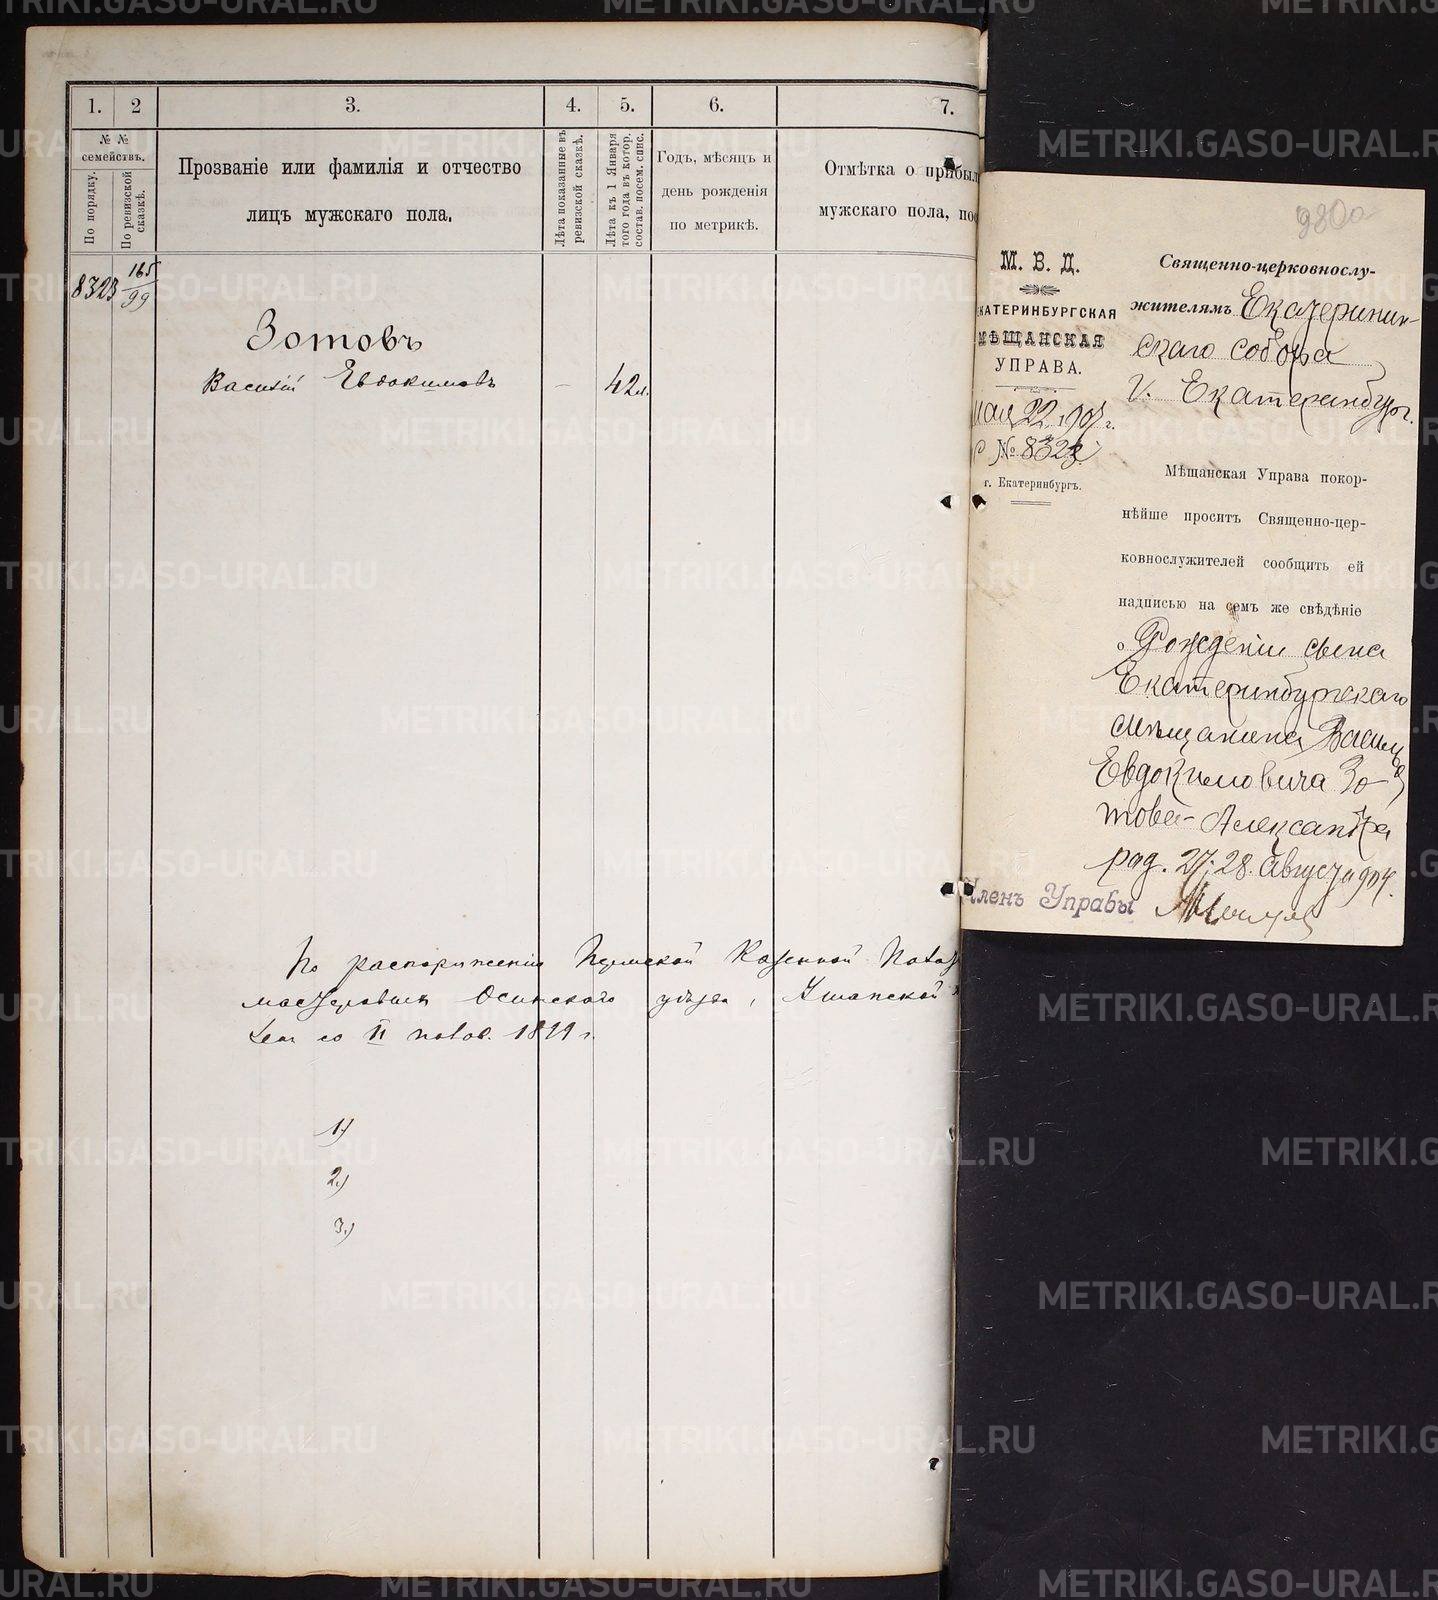 1. 2 3. 4. 5. 6. 7.
№ № семействъ.
По порядку.
По ревизской сказкѣ.
Прозваніе или фамилія и отчество
лицъ мужскаго пола.
Лѣта показанные въ ревизской сказкѣ.
Лѣта къ 1 Января того года въ котор. состав. посем. спис.
Годъ, мѣсяцъ и
день рожденія
по метрикѣ.
Отмѣтка о прибыл
мужскаго пола, пос
8323 165/99
Зотовъ
Василій Евдокимовъ — 42 л.
По распоряженію Пермской Казенной Палаты
Осинскаго уѣзда,
со II 1899 г.
1)
2)
3)
980а
М. В. Д.
ЕКАТЕРИНБУРГСКАЯ
МѢЩАНСКАЯ
УПРАВА.
мая 22 1907 г.
№ 8323
г. Екатеринбургъ.
Священно-церковнослу-
жителямъ Екатеринин-
скаго собора
г. Екатеринбург.
Мѣщанская Управа покор-
нѣйше проситъ Священно-цер-
ковнослужителей сообщить ей
надписью на семъ же свѣдѣніе
о Рожденіи сына
Екатеринбургскаго
мѣщанина Василья
Евдокимовича Зо-
това - Александра
род. 27; 28. Августа 904.
Членъ Управы
METRIKI.GASO-URAL.RU